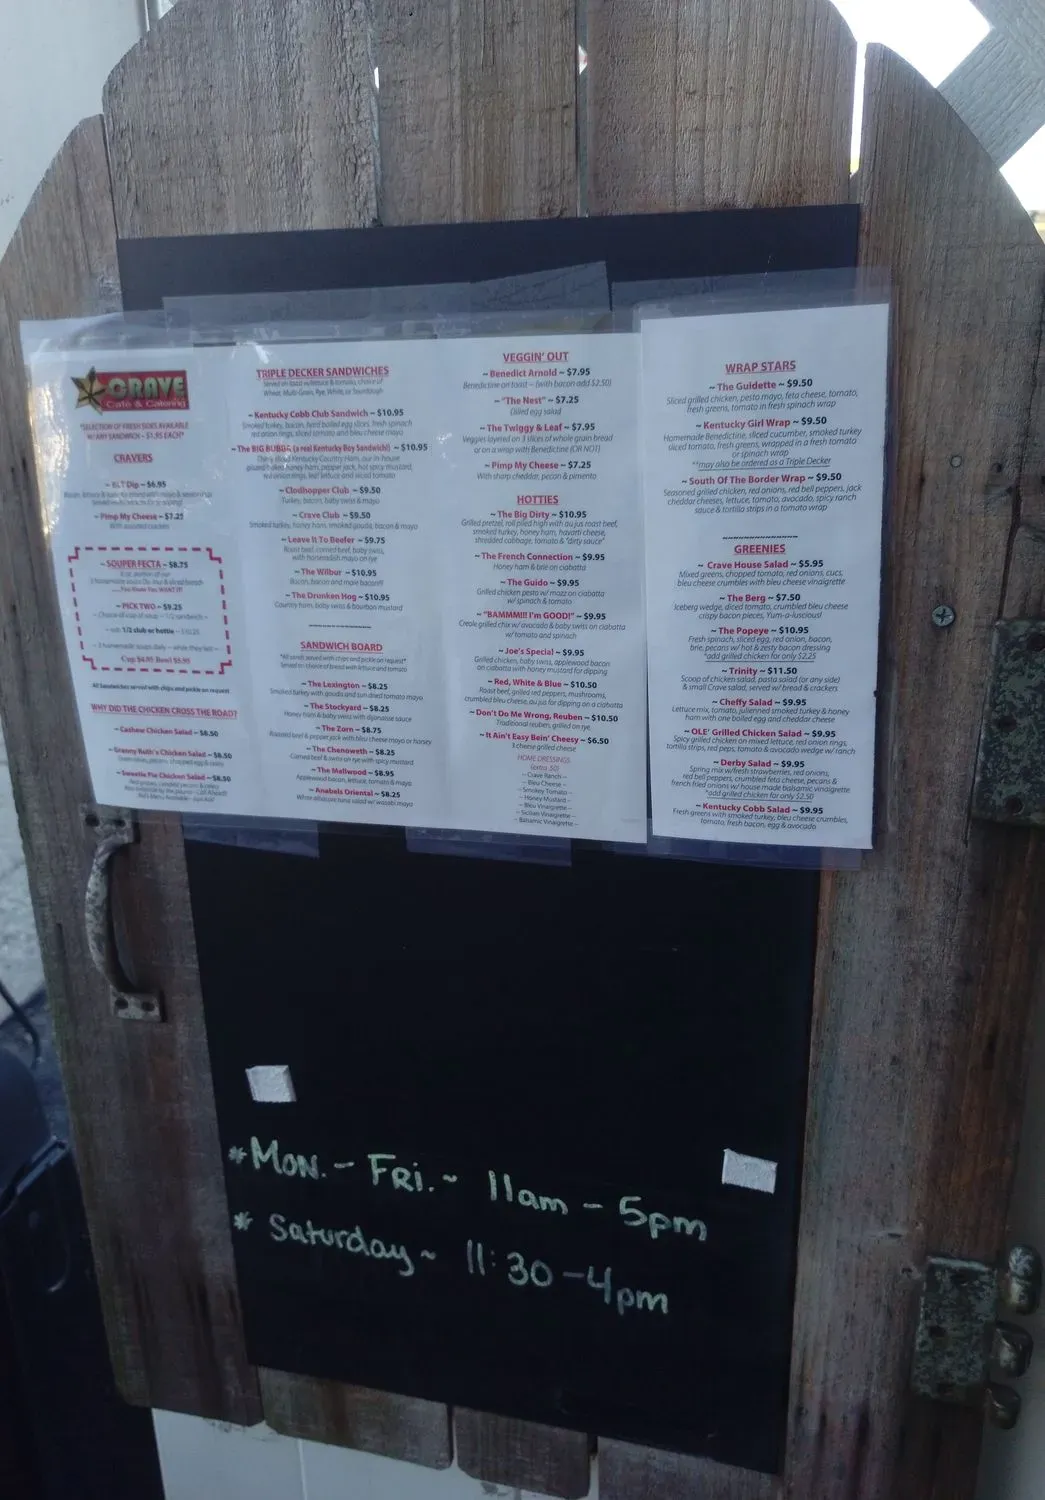 CRAVE
Café & Catering
*SELECTION OF FRESH SIDES AVAILABLE
W/ ANY SANDWICH ~ $1.95 EACH*
CRAVERS
~ BLT Dip ~ $6.95
~ Pimp My Cheese ~ $7.25
With assorted crackers
~ SOUPER FECTA ~ $8.75
.....You Know You WANT IT!
~ PICK TWO ~ $9.25
~ Choice of cup of soup ~ 1/2 sandwich ~
~ sub 1/2 club or hottie ~ $10.25
~ 2 homemade soups daily ~ while they last ~
Cup $4.95 Bowl $5.95
All Sandwiches served with chips and pickle on request
WHY DID THE CHICKEN CROSS THE ROAD?
~ Cashew Chicken Salad ~ $8.50
~ Granny Ruth's Chicken Salad ~ $8.50
~ Sweetie Pie Chicken Salad ~ $8.50
TRIPLE DECKER SANDWICHES
Served on toast w/ lettuce & tomato, choice of
Wheat, Multi-Grain, Rye, White, or Sourdough
~ Kentucky Cobb Club Sandwich ~ $10.95
Smoked turkey, bacon, hard boiled egg slices, fresh spinach
red onion rings, sliced tomato and bleu cheese mayo
~ The BIG BUBBA (a real Kentucky Boy Sandwich!) ~ $10.95
Thinly sliced Kentucky Country Ham, our in-house
glazed baked honey ham, pepper jack, hot spicy mustard,
red onion rings, leaf lettuce and sliced tomato
~ Clodhopper Club ~ $9.50
Turkey, bacon, baby swiss & mayo
~ Crave Club ~ $9.50
Smoked turkey, honey ham, smoked gouda, bacon & mayo
~ Leave It To Beefer ~ $9.75
Roast beef, corned beef, baby swiss,
with horseradish mayo on rye
~ The Wilbur ~ $10.95
Bacon, bacon and more bacon!!!
~ The Drunken Hog ~ $10.95
Country ham, baby swiss & bourbon mustard
SANDWICH BOARD
*All sands served with chips and pickle on request*
Served on choice of bread with lettuce and tomato
~ The Lexington ~ $8.25
Smoked turkey with gouda and sun dried tomato mayo
~ The Stockyard ~ $8.25
Honey ham & baby swiss with dijonaisse sauce
~ The Zorn ~ $8.75
Roasted beef & pepper jack with bleu cheese mayo or honey
~ The Chenoweth ~ $8.25
Corned beef & swiss w/ rye with spicy mustard
~ The Mallwood ~ $8.95
Applewood bacon, lettuce, tomato & mayo
~ Anabels Oriental ~ $8.25
White albacore tuna salad w/ wasabi mayo
VEGGIN' OUT
~ Benedict Arnold ~ $7.95
Benedictine on toast ~ (with bacon add $2.50)
~ "The Nest" ~ $7.25
Dilled egg salad
~ The Twiggy & Leaf ~ $7.95
Veggies layered on 3 slices of whole grain bread
or on a wrap with Benedictine (OR NOT)
~ Pimp My Cheese ~ $7.25
With sharp cheddar, pecan & pimento
HOTTIES
~ The Big Dirty ~ $10.95
Grilled pretzel, roll piled high with au jus roast beef,
smoked turkey, honey ham, havarti cheese,
shredded cabbage, tomato & "dirty sauce"
~ The French Connection ~ $9.95
Honey ham & brie on ciabatta
~ The Guido ~ $9.95
Grilled chicken pesto w/ mozz on ciabatta
w/ spinach & tomato
~ "BAMMM!!! I'm GOOD!" ~ $9.95
Creole grilled chix w/ avocado & baby swiss on ciabatta
w/ tomato and spinach
~ Joe's Special ~ $9.95
Grilled chicken, baby swiss, applewood bacon
on ciabatta with honey mustard for dipping
~ Red, White & Blue ~ $10.50
Roast beef, grilled red peppers, mushrooms,
crumbled bleu cheese, au jus for dipping on a ciabatta
~ Don't Do Me Wrong, Reuben ~ $10.50
Traditional reuben, grilled on rye
~ It Ain't Easy Bein' Cheesy ~ $6.50
3 cheese grilled cheese
HOME DRESSINGS
(extra .50)
~ Crave Ranch ~
~ Bleu Cheese ~
~ Smokey Tomato ~
~ Honey Mustard ~
~ Bleu Vinaigrette ~
~ Sicilian Vinaigrette ~
~ Balsamic Vinaigrette ~
WRAP STARS
~ The Guidette ~ $9.50
Sliced grilled chicken, pesto mayo, feta cheese, tomato,
fresh greens, tomato in fresh spinach wrap
~ Kentucky Girl Wrap ~ $9.50
Homemade Benedictine, sliced cucumber, smoked turkey
sliced tomato, fresh greens, wrapped in a fresh tomato
or spinach wrap
**may also be ordered as a Triple Decker
~ South Of The Border Wrap ~ $9.50
Seasoned grilled chicken, red onions, red bell peppers, jack
cheddar cheeses, lettuce, tomato, avocado, spicy ranch
sauce & tortilla strips in a tomato wrap
GREENIES
~ Crave House Salad ~ $5.95
Mixed greens, chopped tomato, red onions, cucs,
bleu cheese crumbles with bleu cheese vinaigrette
~ The Berg ~ $7.50
Iceberg wedge, diced tomato, crumbled bleu cheese
crispy bacon pieces, Yum-o-luscious!
~ The Popeye ~ $10.95
Fresh spinach, sliced egg, red onion, bacon,
brie, pecans w/ hot & zesty bacon dressing
*add grilled chicken for only $2.25
~ Trinity ~ $11.50
Scoop of chicken salad, pasta salad (or any side)
& small Crave salad, served w/ bread & crackers
~ Cheffy Salad ~ $9.95
Lettuce mix, tomato, julienned smoked turkey & honey
ham with one boiled egg and cheddar cheese
~ OLE' Grilled Chicken Salad ~ $9.95
Spicy grilled chicken on mixed lettuce, red onion rings,
tortilla strips, red peps, tomato & avocado wedge w/ ranch
~ Derby Salad ~ $9.95
Spring mix w/ fresh strawberries, red onions,
red bell peppers, crumbled feta cheese, pecans &
french fried onions w/ house made balsamic vinaigrette
*add grilled chicken for only $2.50
~ Kentucky Cobb Salad ~ $9.95
Fresh greens with smoked turkey, bleu cheese crumbles,
tomato, fresh bacon, egg & avocado
* Mon. - Fri. ~ 11am - 5pm
* Saturday ~ 11:30 - 4pm